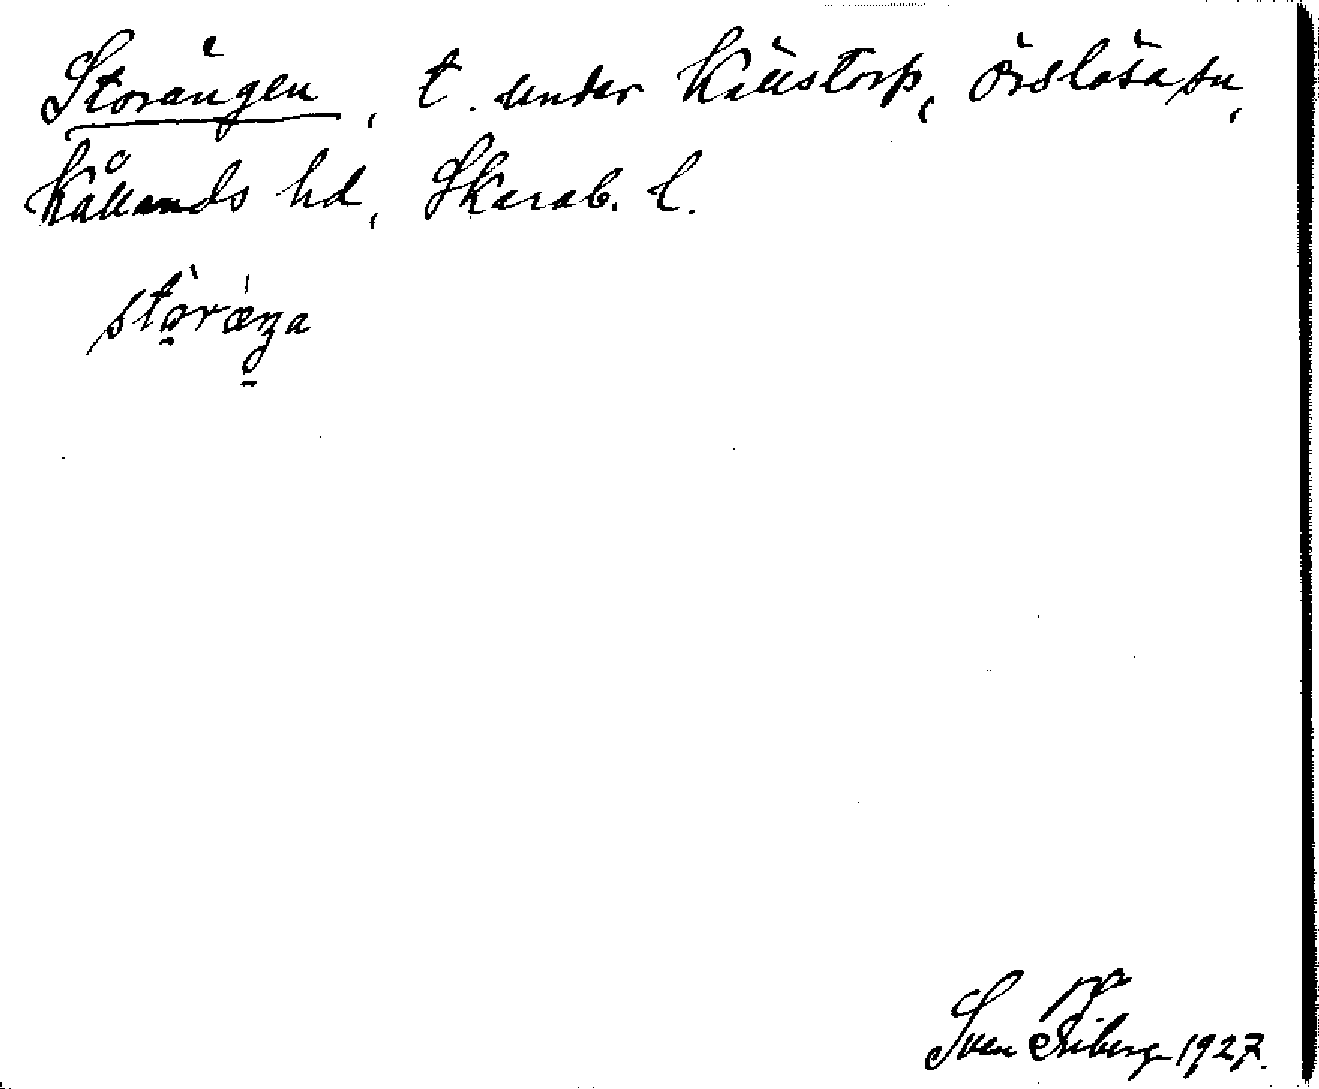 Storängen, t. under Källstorp, Örslösa sn,
Kållands hd, Skarab. l.
stòrǽŋa
Sven Friberg 1927.